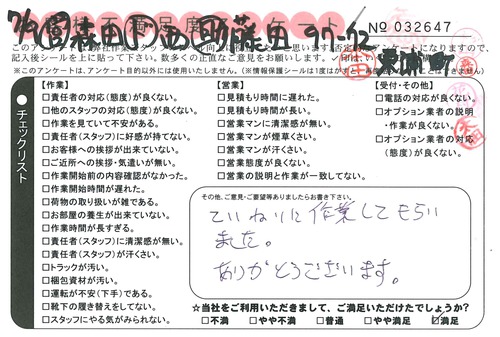 お客様不満足度アンケート
№ 032647
このアンケートは弊社作業スタッフのレベル向上に役立てたいと思います。否定的なアンケートになりますので、
記入後シールを上に貼って下さい。数多くの正直なご意見をお願いします。
※このアンケートは、アンケート目的以外には使用いたしません。
チェックリスト
【作業】
□責任者の対応(態度)が良くない。
□他のスタッフの対応(態度)が良くない。
□作業を見ていて不安がある。
□責任者(スタッフ)に好感が持てない。
□お客様への挨拶が出来ていない。
□ご近所への挨拶・気遣いが無い。
□作業開始前の内容確認がなかった。
□作業開始時間が遅れた。
□荷物の取り扱いが雑である。
□お部屋の養生が出来ていない。
□作業時間が長すぎる。
□責任者(スタッフ)に清潔感が無い。
□責任者(スタッフ)が汗くさい。
□トラックが汚い。
□梱包資材が汚い。
□運転が不安(下手)である。
□靴下の履き替えをしてない。
□スタッフにやる気がみられない。
【営業】
□見積もり時間に遅れた。
□見積もり時間が長い。
□営業マンに清潔感が無い。
□営業マンが煙草くさい。
□営業マンが汗くさい。
□営業態度が良くない。
□営業の説明と作業が一致してない。
【受付・その他】
□電話の対応が良くない。
□オプション業者の説明
・作業が良くない。
□オプション業者の対応
(態度)が良くない。
その他、ご意見・ご要望等ありましたらお書き下さい。
ていねいに作業してもらい
ました。
ありがとうございます。
☆当社をご利用いただきまして、ご満足いただけたでしょうか?
□不満 □やや不満 □普通 □やや満足 ☑満足